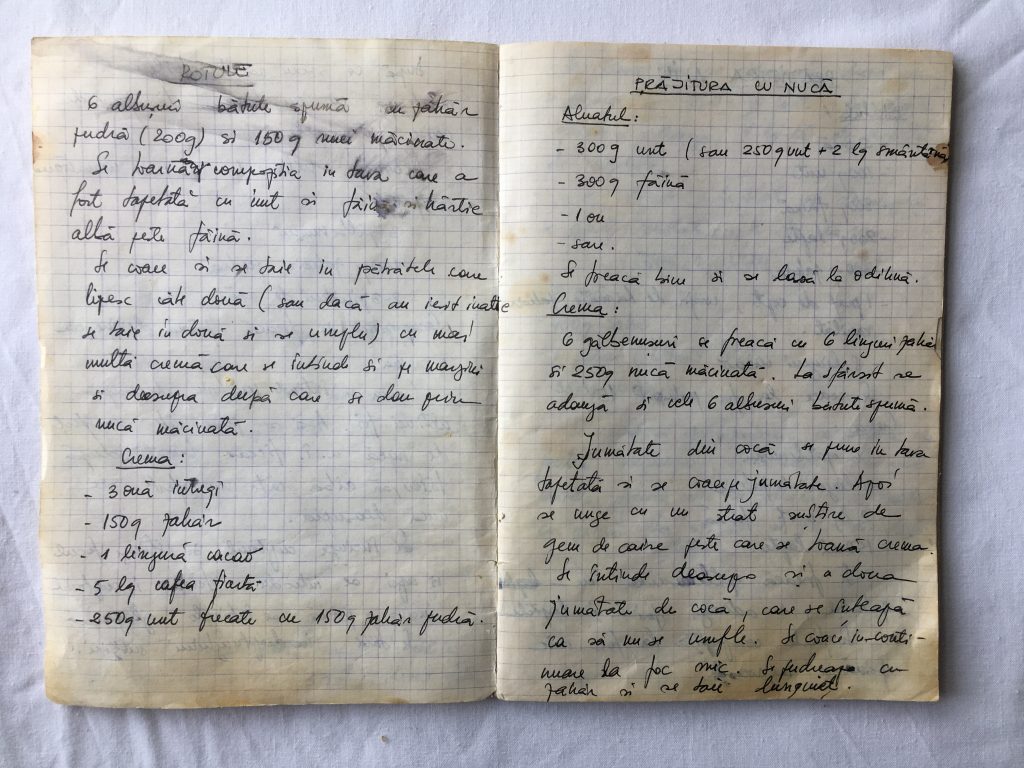 ROTULE
6 albusuri bătute spumă cu zahăr
pudră (200g) si 150 g nuci măcinate.
Se toarnă compoziția in tava care a
fost tapetată cu unt si făină si hârtie
albă peste făină.
Se coace si se taie in pătrățele care
lipesc câte două (sau dacă au iesit inalte
se taie in două si se umplu) cu mai
multă cremă care se intinde si pe margini
si deasupra după care se dau prin
nucă măcinată.
Crema:
- 3 ouă întregi
- 150g zahăr
- 1 lingură cacao
- 5 lg cafea fiartă
- 250g unt frecate cu 150g zahăr pudră.
PRĂJITURA CU NUCĂ
Aluatul:
- 300g unt (sau 250g unt + 2 lg smântână
- 300g făină
- 1 ou
- sare.
Se freacă bine si se lasă la odihnă.
Crema:
6 gălbenusuri se freacă cu 6 linguri zahăr
si 250g nucă măcinată. La sfârsit se
adaugă si cele 6 albusuri bătute spumă.
Jumătate din cocă se pune in tava
tapetată si se coace jumătate. Apoi
se unge cu un strat subtire de
gem de caise peste care se toarnă crema.
Se întinde deasupra si a doua
jumătate de cocă, care se înteapă
ca să nu se umfle. Se coace in conti-
nuare la foc mic. Se pudrează cu
zahăr si se taie lunguiet.